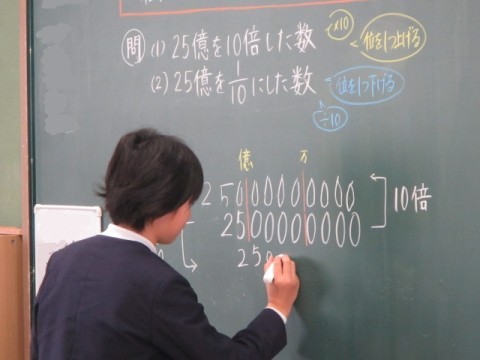 問 (1) 25億を10倍した数 ×10 位を1つ上げる
(2) 25億を1/10にした数 位を1つ下げる
÷10
億 万
25000000000
2500000000 10倍
250